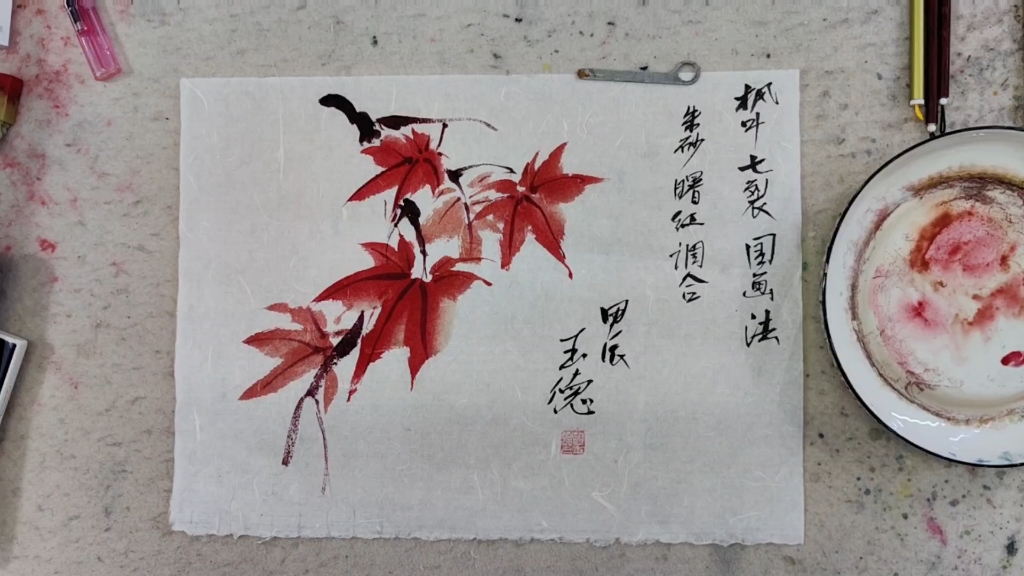 枫叶七裂国画法
朱砂曙红调合
甲辰
玉德